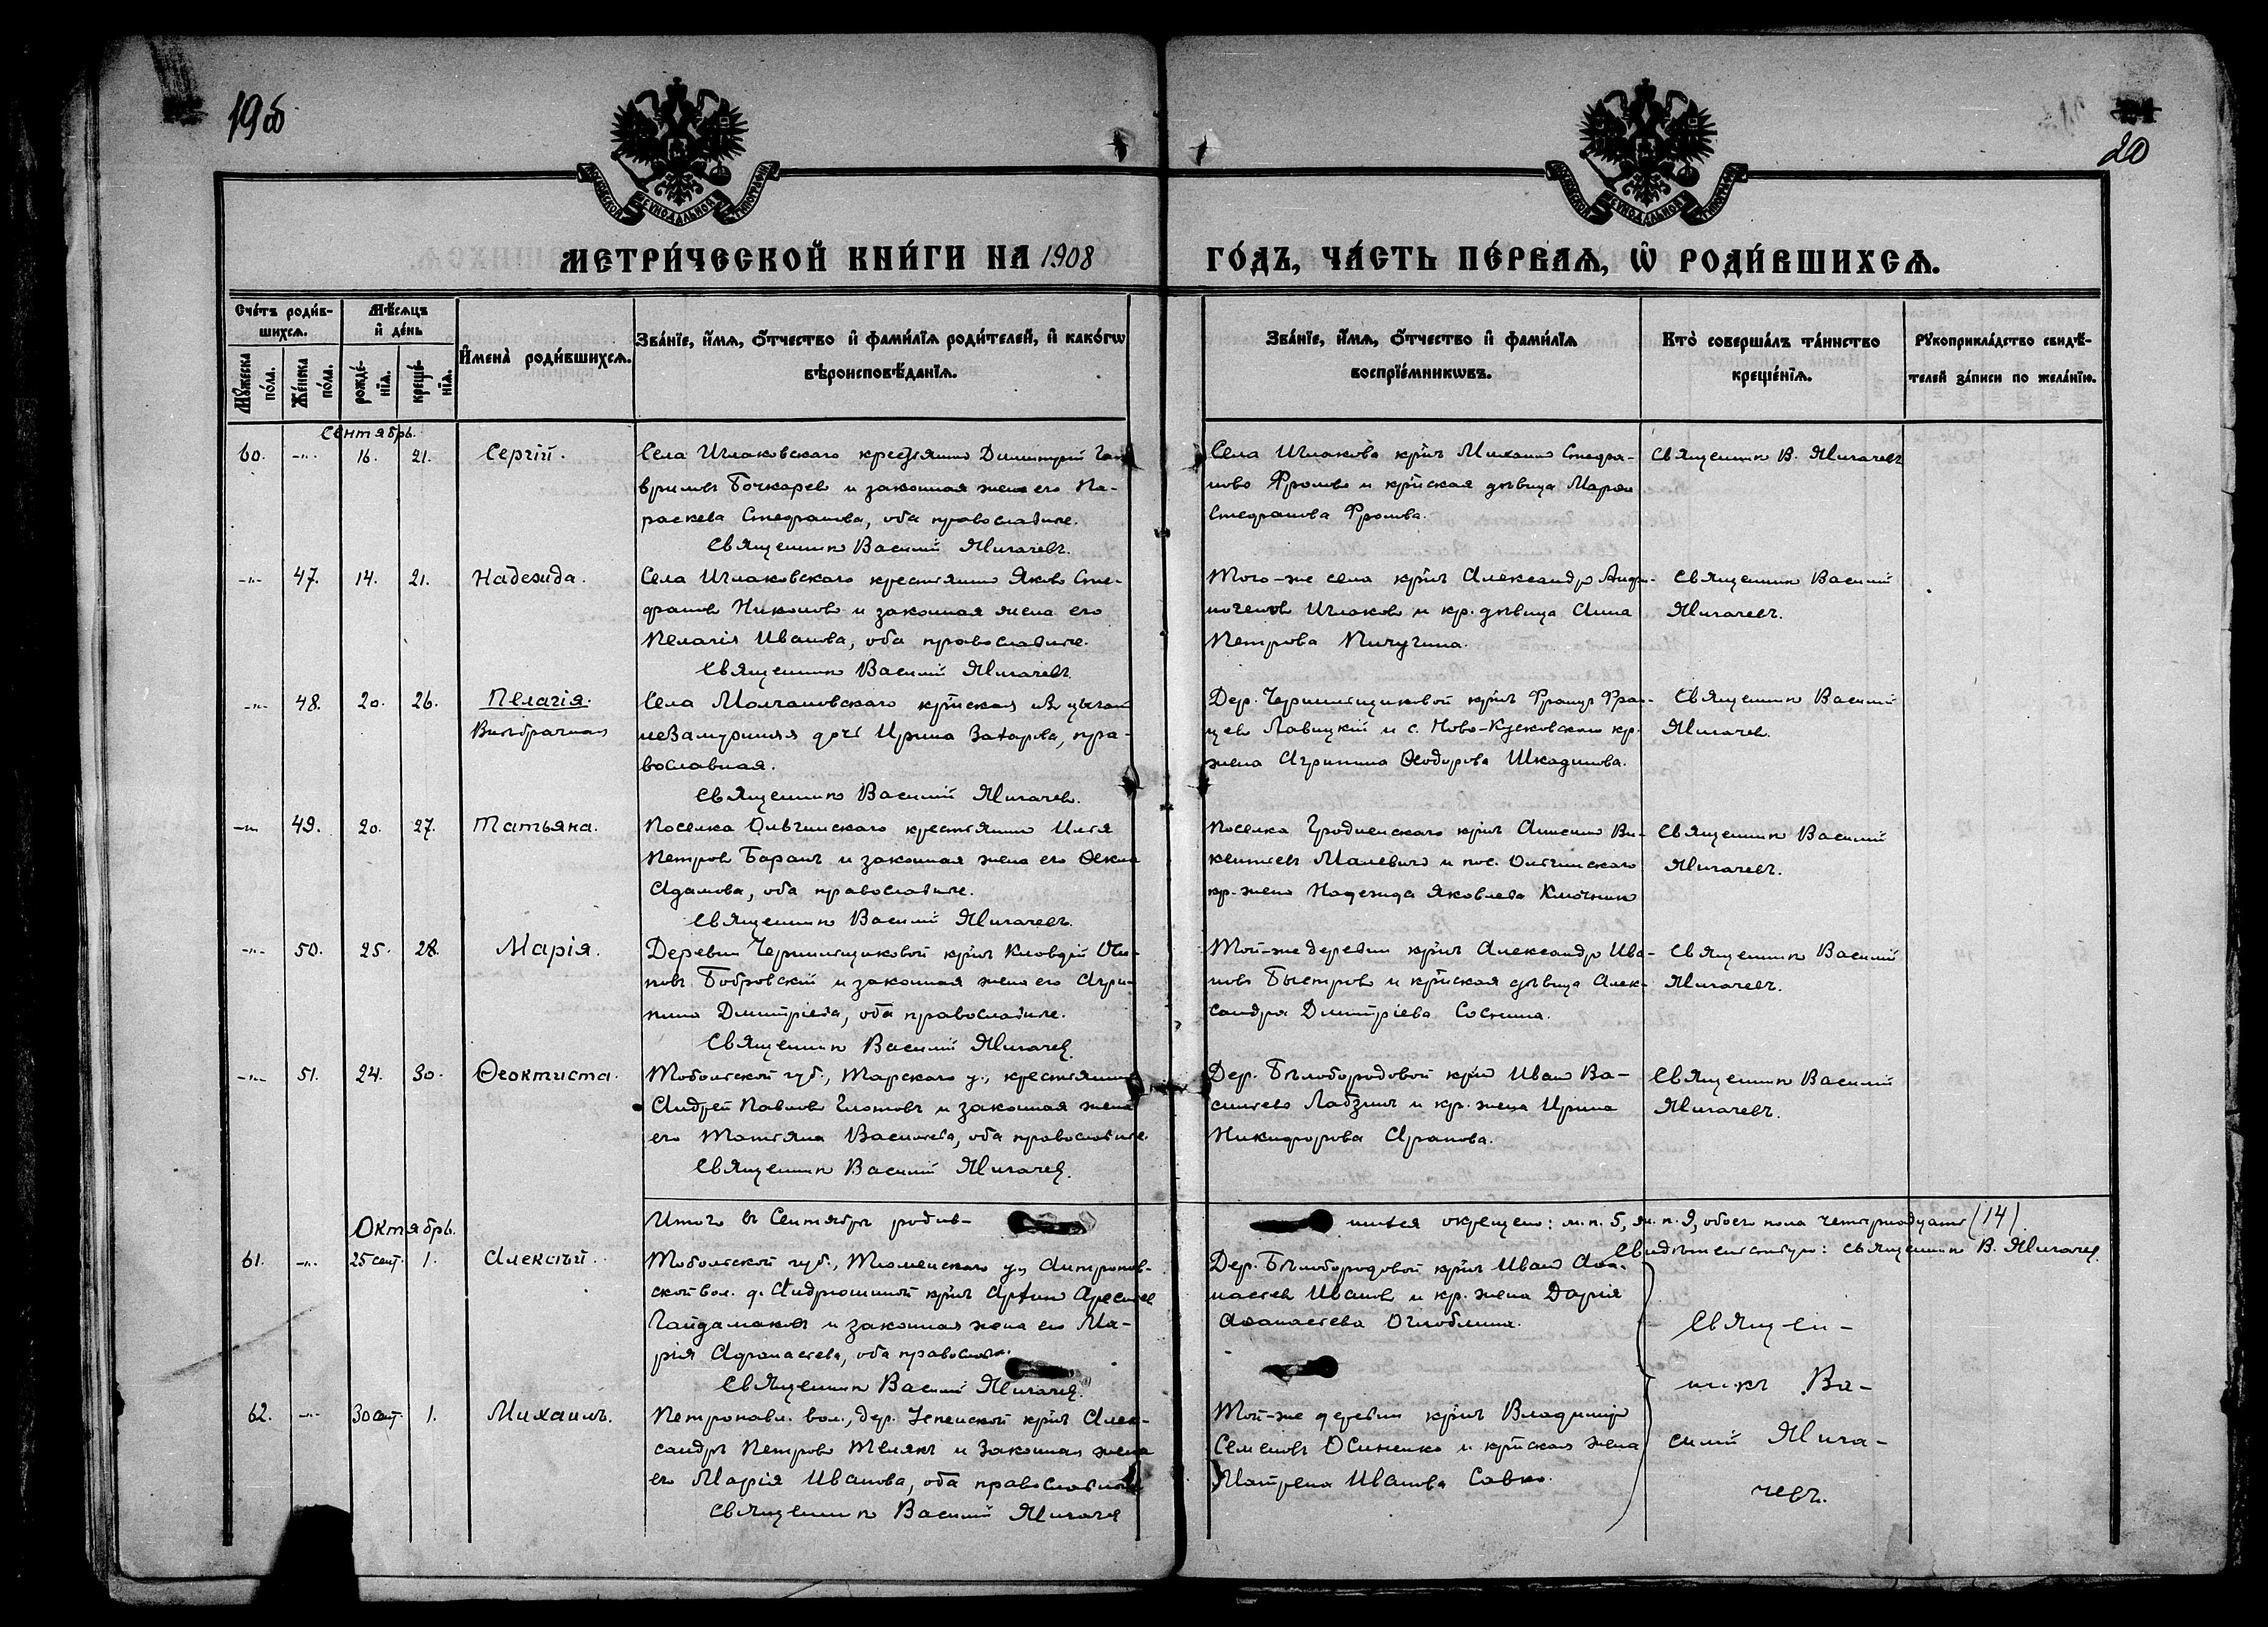 19об
20
МЕТРИ́ЧЕСКОЙ КНИ́ГИ НА 1908
ГО́ДЪ, ЧА́СТЬ ПЕ́РВАѦ, Ѡ҆ РОДИ́ВШИХСѦ.
Сче́тъ роди́в-
шихсѧ.
Мꙋ́жеска
по́ла.
Же́нска
по́ла.
Мѣ́сѧцъ
и҆ де́нь
рожде́-
нїѧ.
креще́-
нїѧ.
И҆мена̀ роди́вшихсѧ.
Зва́нїе, и҆́мѧ, ѻ҆́тчество и҆ фами́лїѧ роди́телей, и҆ како́гѡ
вѣроисповѣ́данїѧ.
Зва́нїе, и҆́мѧ, ѻ҆́тчество и҆ фами́лїѧ
воспрїе́мникѡвъ.
Кто̀ соверша́лъ та́инство
креще́нїѧ.
Рꙋкоприкла́дство свидѣ́-
телей за́писи по жела́нїю.
Сентябрь.
60. -"- 16. 21. Сергій.
Села Ишаковскаго крестьянинъ Димитрій Га-
вриловъ Бочкаревъ и законная жена его Па-
раскева Стефанова, оба православные.
Священникъ Василій Мигачевъ.
Села кр-нъ Михаилъ Стефа-
новъ Фроловъ и кр-нская дѣвица Марѳа
Стефанова Фролова.
Священникъ В. Мигачевъ
-"- 47. 14. 21. Надежда.
Села Ишаковскаго крестьянинъ Яковъ Сте-
фановъ Никоновъ и законная жена его
Пелагія Иванова, оба православные.
Священникъ Василій Мигачевъ
Того-же села кр-нъ Александръ
и кр. дѣвица Анна
Петрова Пичугина.
Священникъ Василій
Мигачевъ.
-"- 48. 20. 26. Пелагія.
Внѣбрачная
Села Молчановскаго кр-нская изъ цыганъ
незамужняя дочь Ирина Захарова, пра-
вославная.
Священникъ Василій Мигачевъ.
Дер. Чернильщиковой кр-нъ Францъ Фран-
цевъ Лавицкій и с. Ново-Кусковскаго кр.
жена Агрипина Ѳеодорова Шкадинова.
Священникъ Василій
Мигачевъ.
-"- 49. 20. 27. Татьяна.
Поселка Ольгинскаго крестьянинъ Илья
Петровъ Баранъ и законная жена его Ѳекла
Адамова, оба православные.
Священникъ Василій Мигачевъ.
Поселка Гродненскаго кр-нъ Ви-
кентьевъ Малевичъ и пос. Ольгинскаго
кр. жена Надежда Яковлева Ключникъ
Священникъ Василій
Мигачевъ.
-"- 50. 25. 28. Марія.
Деревни Чернильщиковой кр-нъ Клавдій Оси-
повъ Бобровскій и законная жена его Агри-
пина Димитріева, оба православные.
Священникъ Василій Мигачевъ.
Той-же деревни кр-нъ Александръ Ива-
новъ Быстровъ и кр-нская дѣвица Алек-
сандра Димитріева Соснина.
Священникъ Василій
Мигачевъ.
-"- 51. 24. 30. Ѳеоктиста.
Тобольской губ., Тарскаго у., крестьянинъ
Андрей Павловъ Глотовъ и законная жена
его Татьяна Васильева, оба православные.
Священникъ Василій Мигачевъ.
Дер. Бѣлобородовой кр-нъ Иванъ Ва-
сильевъ Лабзинъ и кр. жена Ирина
Никифорова Арапова.
Священникъ Василій
Мигачевъ.
Итого въ Сентябрѣ родив-
шихся окрещено: м. п. 5, ж. п. 9, обоего пола четырнадцать (14).
Свидѣтельствую: священникъ В. Мигачевъ.
Октябрь.
61. -"- 25 сент. 1. Алексѣй.
Тобольской губ., Тюменскаго у., Антропов-
ской вол. д. Андрюшиной кр-нъ
Гайдамаковъ и законная жена его Ма-
рія Афанасьева, оба православн.
Священникъ Василій Мигачевъ.
Дер. Бѣлобородовой кр-нъ Иванъ Аѳа-
насьевъ Ивановъ и кр. жена Дарія
Аѳанасьева Оглоблина.
Священ-
никъ Ва-
силій Мига-
чевъ.
62. -"- 30 сент. 1. Михаилъ.
Петропавл. вол., дер. Успенской кр-нъ Алек-
сандръ Петровъ Телякъ и законная жена
его Марія Иванова, оба православные
Священникъ Василій Мигачевъ
Той-же деревни кр-нъ Владиміръ
Семеновъ Осиненко и кр-нская жена
Матрена Иванова Савко.